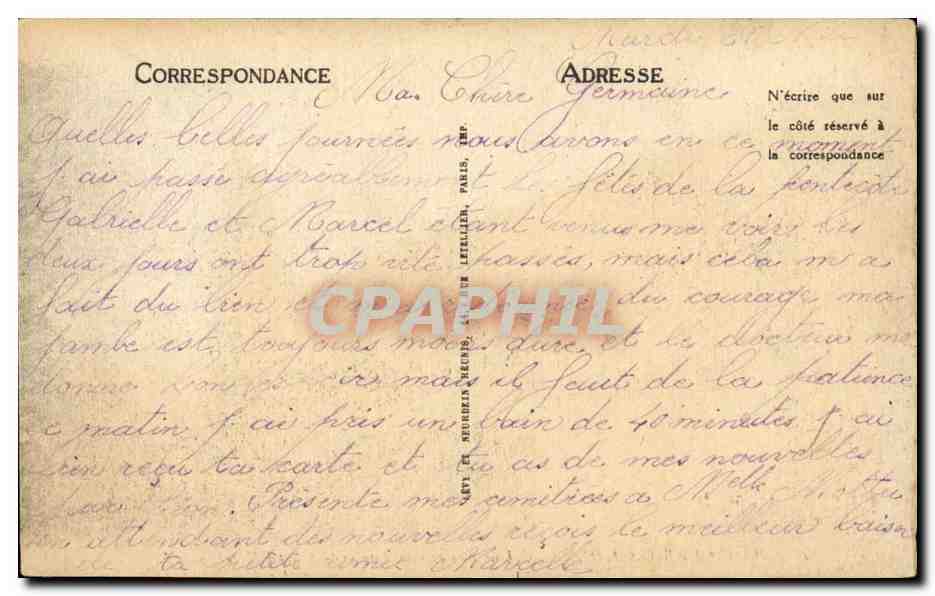 Mardi
CORRESPONDANCE
ADRESSE
Ma Chère Germaine
N'écrire que sur
le côté réservé à
la correspondance
Quelles belles journées nous avons en ce moment
j'ai passé agréablement les fêtes de la pentecôte
Gabrielle et Marcel étant venus me voir les
deux jours ont trop vite passés, mais cela m'a
fait du bien et du courage ma
jambe est toujours moins dure et le docteur me
donne mais il faut de la patience
ce matin j'ai pris un bain de 40 minutes j'ai
bien reçu ta carte et tu as de mes nouvelles
par Présente mes amitiées à Melle
en attendant des nouvelles reçois le meilleur baiser
de ta petite amie Marcelle
LÉVY ET NEURDEIN RÉUNIS, 44, RUE LETELLIER, PARIS, IMP.
CPAPHIL